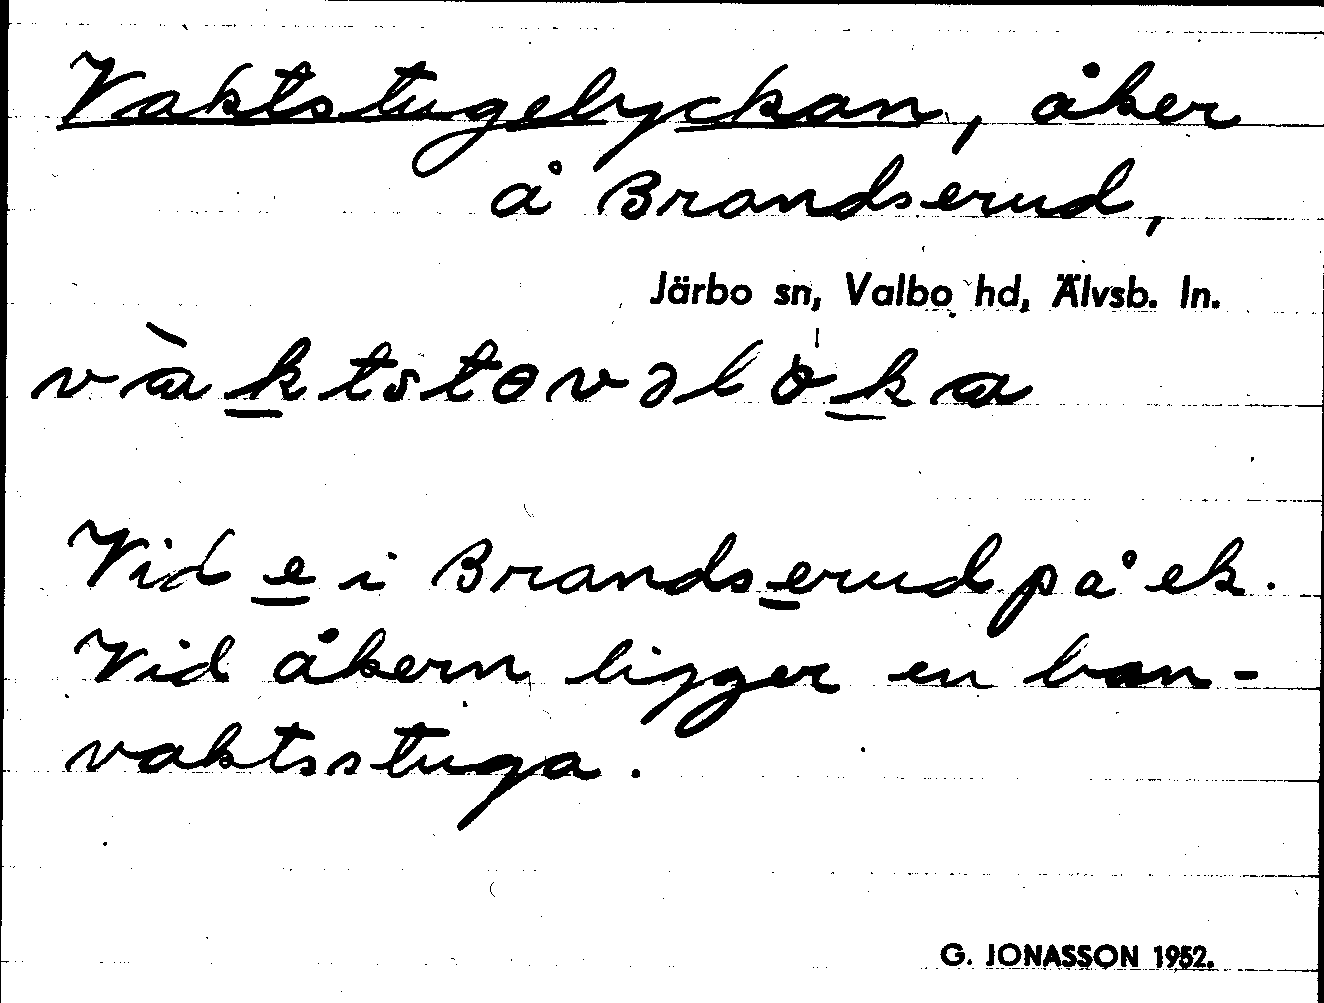 Vaktstugelyckan, åker
å Brandserud,
Järbo sn, Valbo hd, Älvsb. ln.
vàktstɵvəlòka
Vid e i Brandserud på ek.
Vid åkern ligger en ban-
vaktsstuga.
G. JONASSON 1952.